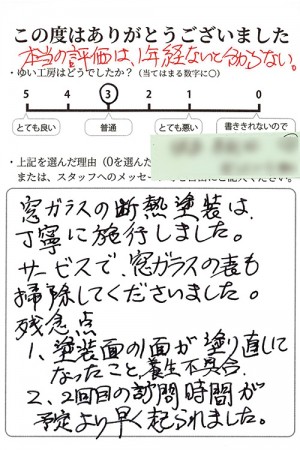 この度はありがとうございました
本当の評価は、1年経ないと分からない。
・ゆい工房はどうでしたか？（当てはまる数字に○）
5 4 3 2 1 0
とても良い 普通 とても悪い 書ききれないので
・上記を選んだ理由（0を選んだ
または、スタッフへのメッセー
窓ガラスの断熱塗装は、
丁寧に施行しました。
サービスで、窓ガラスの表も
掃除してくださいました。
残念点
1、塗装面の1面が塗り直しに
なったこと、養生不具合。
2、2回目の訪問時間が
予定より早く起られました。